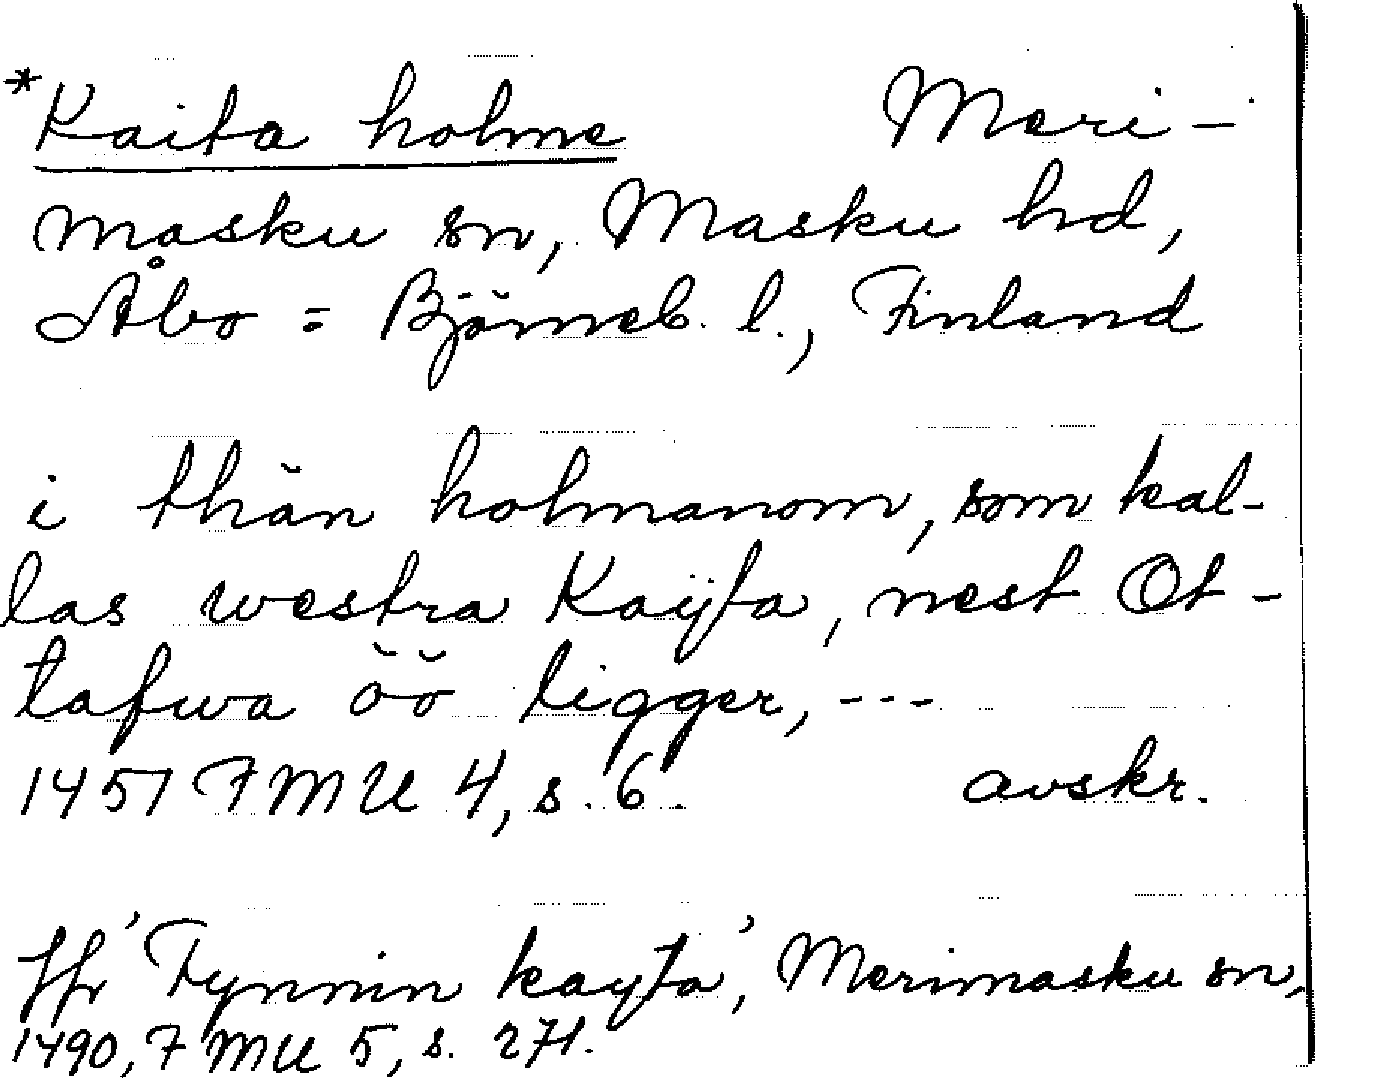 *Kaita holme Meri-
masku sn, Masku hd,
Åbo = Björneb. l., Finland
i thän holmanom, som kal-
las westra Kaÿta, nest Ot-
tafwa öö ligger, ---
1451 FMU 4, s. 6. avskr.
Jfr 'Tynnin kayta', Merimasku sn,
1490, FMU 5, s. 271.